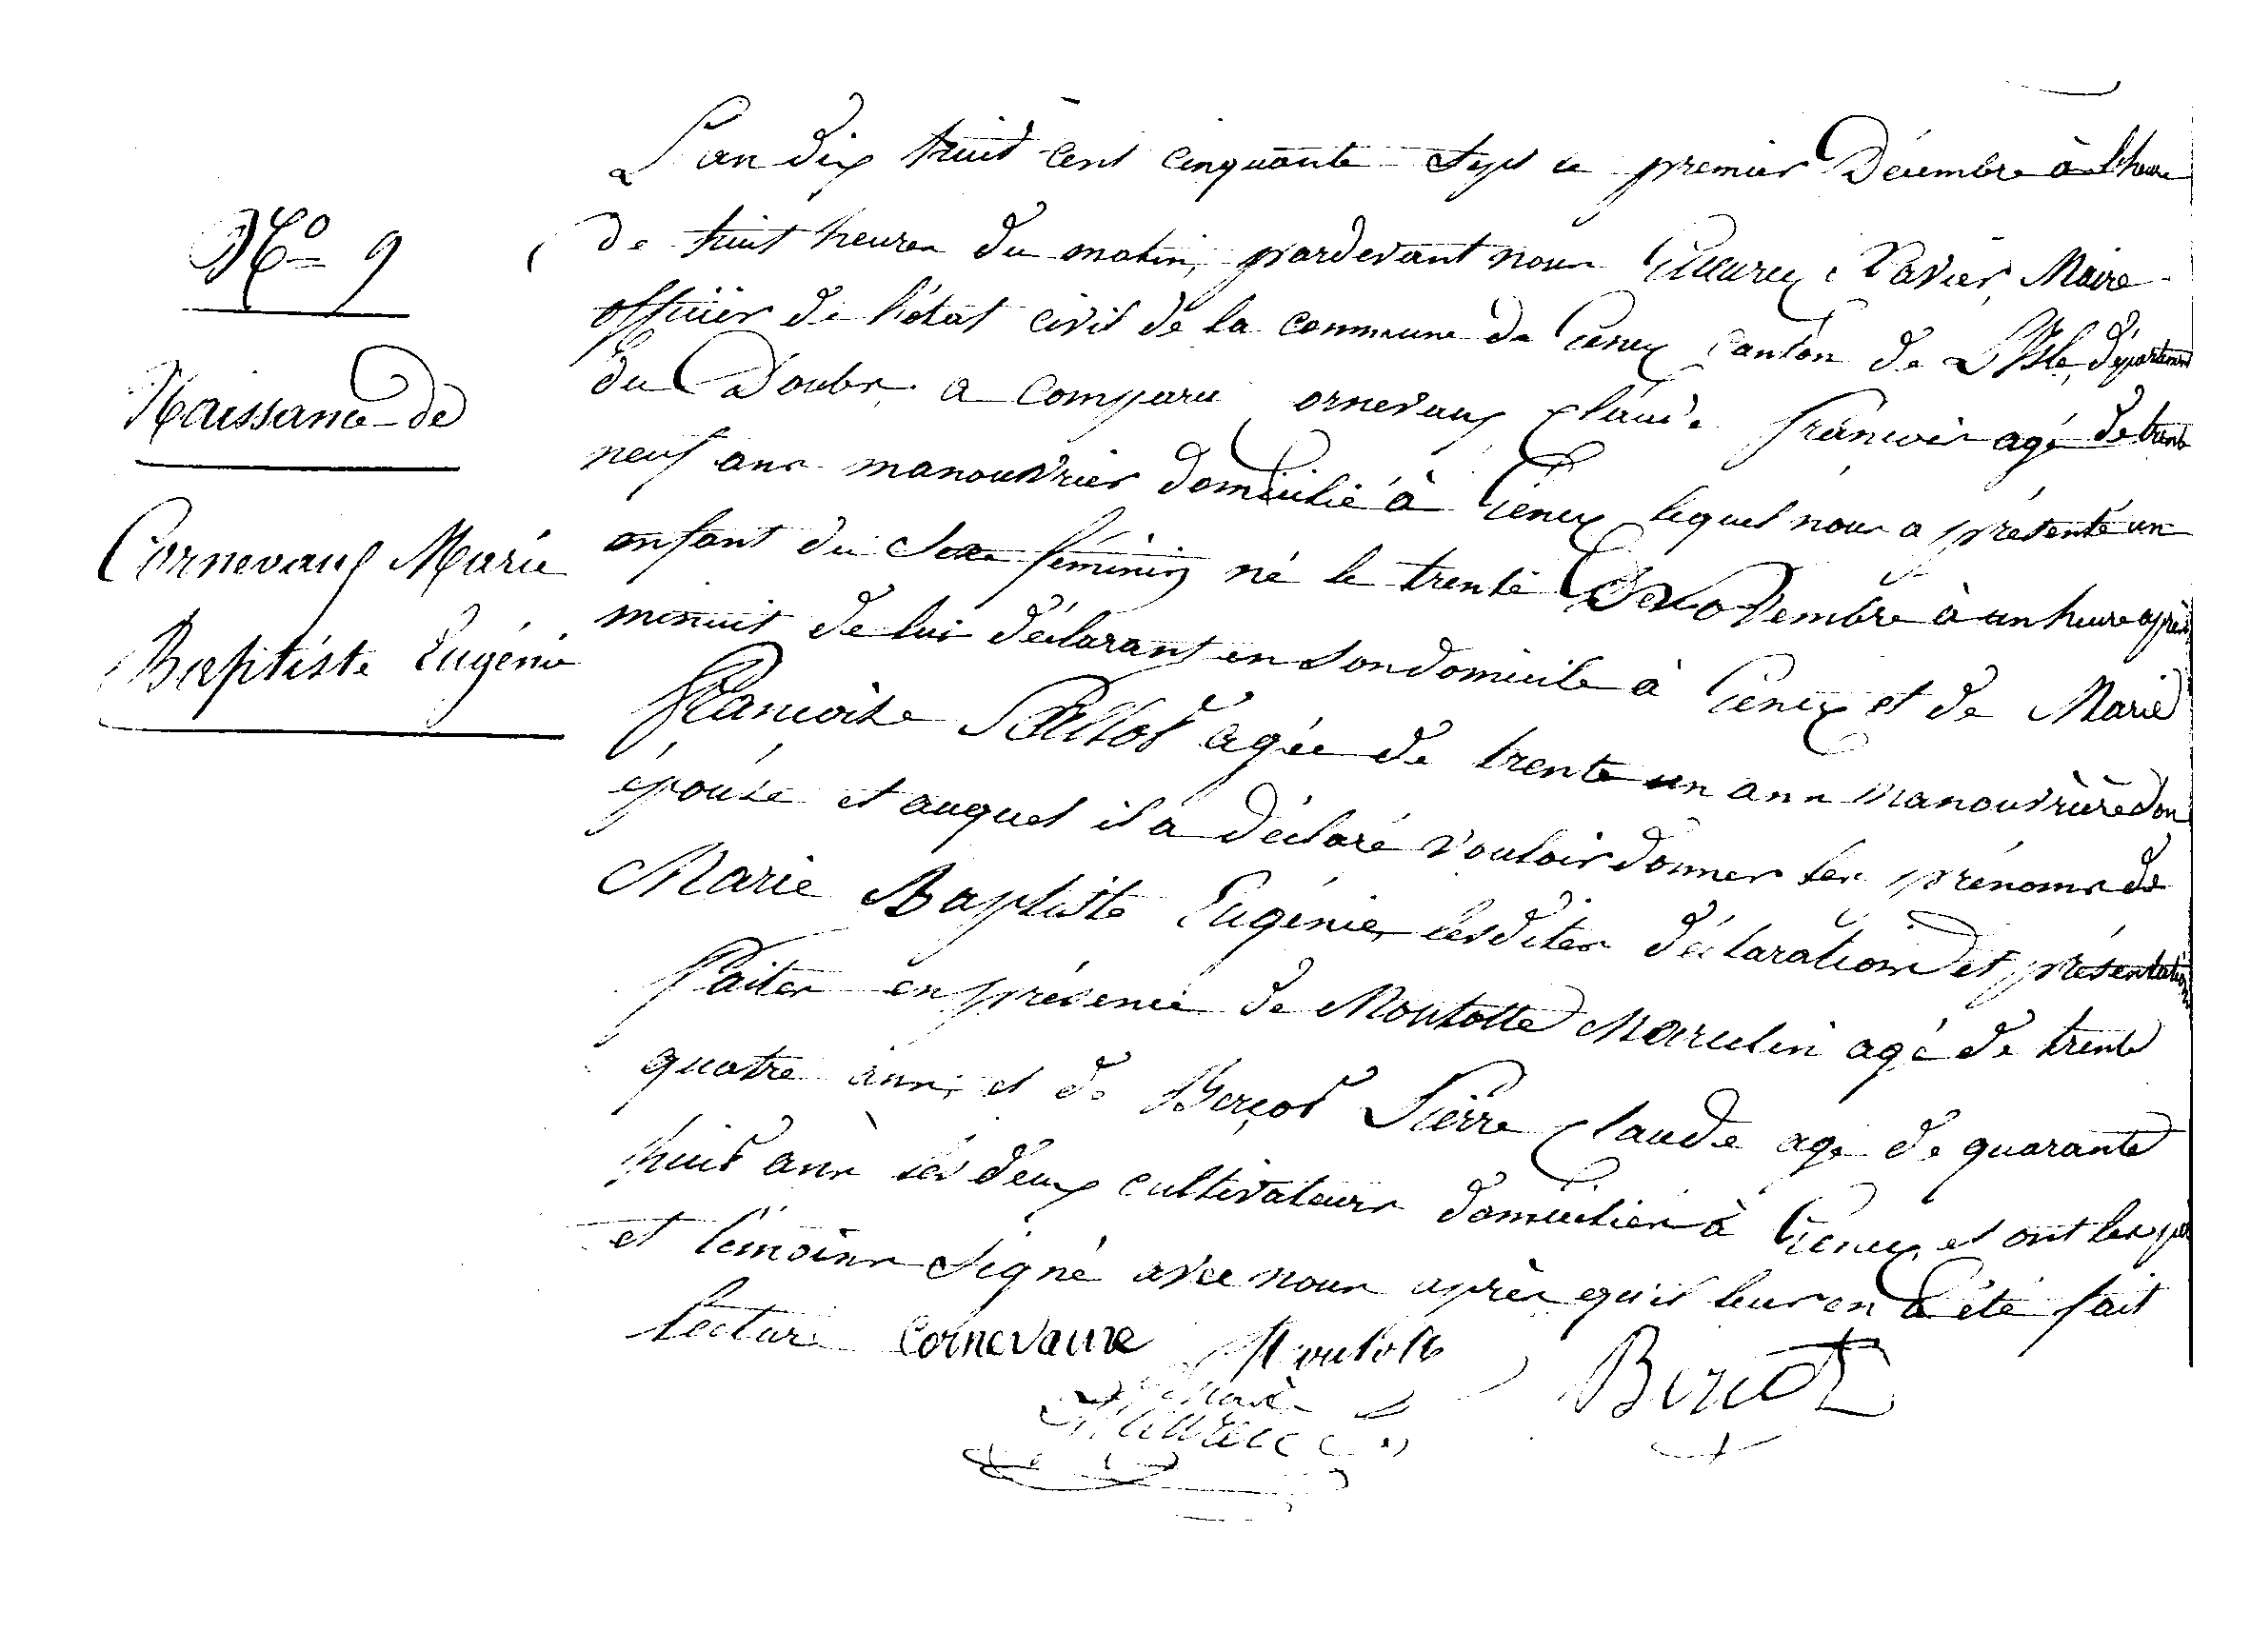 N.o 9
Naissance de
Cornevaux Marie
Baptiste Eugénie
L'an dix huit cent cinquante sept le premier Décembre à l'heure
de huit heures du matin, pardevant nous Xavier, Maire
officier de l'état civil de la commune de canton de L'Isle, départem
du Doubs, a comparu Cornevaux Claude françois agé de trente
neuf ans manouvrier domicilié à lequel nous a présenté un
enfant du sexe féminin né le trente de Novembre à un heure après
minuit de lui déclarant en son domicile à et de Marie
françoise agée de trente un ans manouvrière son
épouse et auquel il a déclaré vouloir donner les prénoms de
Marie Baptiste Eugénie, lesdites déclaration et présentation
faites en présence de Moutotte Marcelin agé de trente
quatre ans, et de Berçot Pierre Claude agé de quarante
huit ans les deux cultivateurs domiciliés à et ont les père
et témoins signé avec nous après qu'il leur en a été fait
lecture Cornevaux Moutotte
Berçot